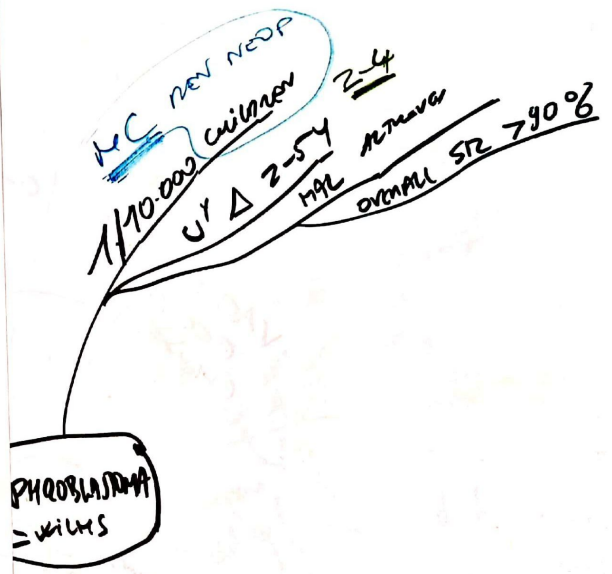 MC REN NEOP
1/10.000 CHILDREN
Δ 2-5Y 2-4
MAL ALTHOUGH
OVERALL SR >90%
PHROBLASTOMA
= WILMS